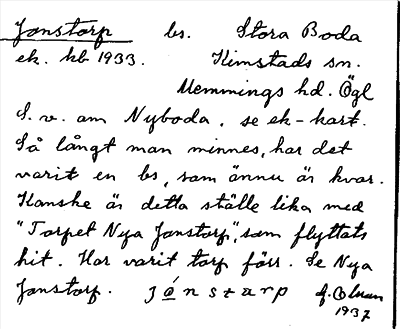 Jonstorp bs. Stora Boda
ek. kb 1933. Kimstads sn.
Memmings hd. Ögl
S. v. om Nyboda, se ek-kart.
Så långt man minnes, har det
varit en bs, som ännu är kvar.
Kanske är detta ställe lika med
"Torpet Nya Jonstorp", som flyttats
hit. Har varit torp förr. Se Nya
Jonstorp.
1937